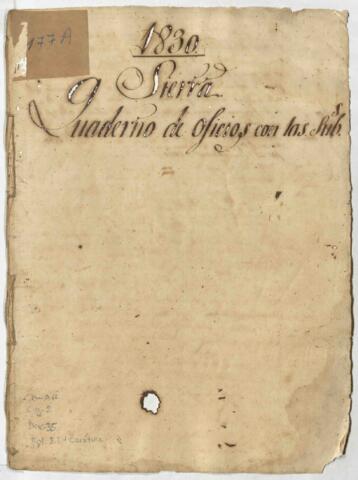 177A
1830
Sierra
Quaderno de oficios con las Sub.s
Caj. 2
Doc. 35